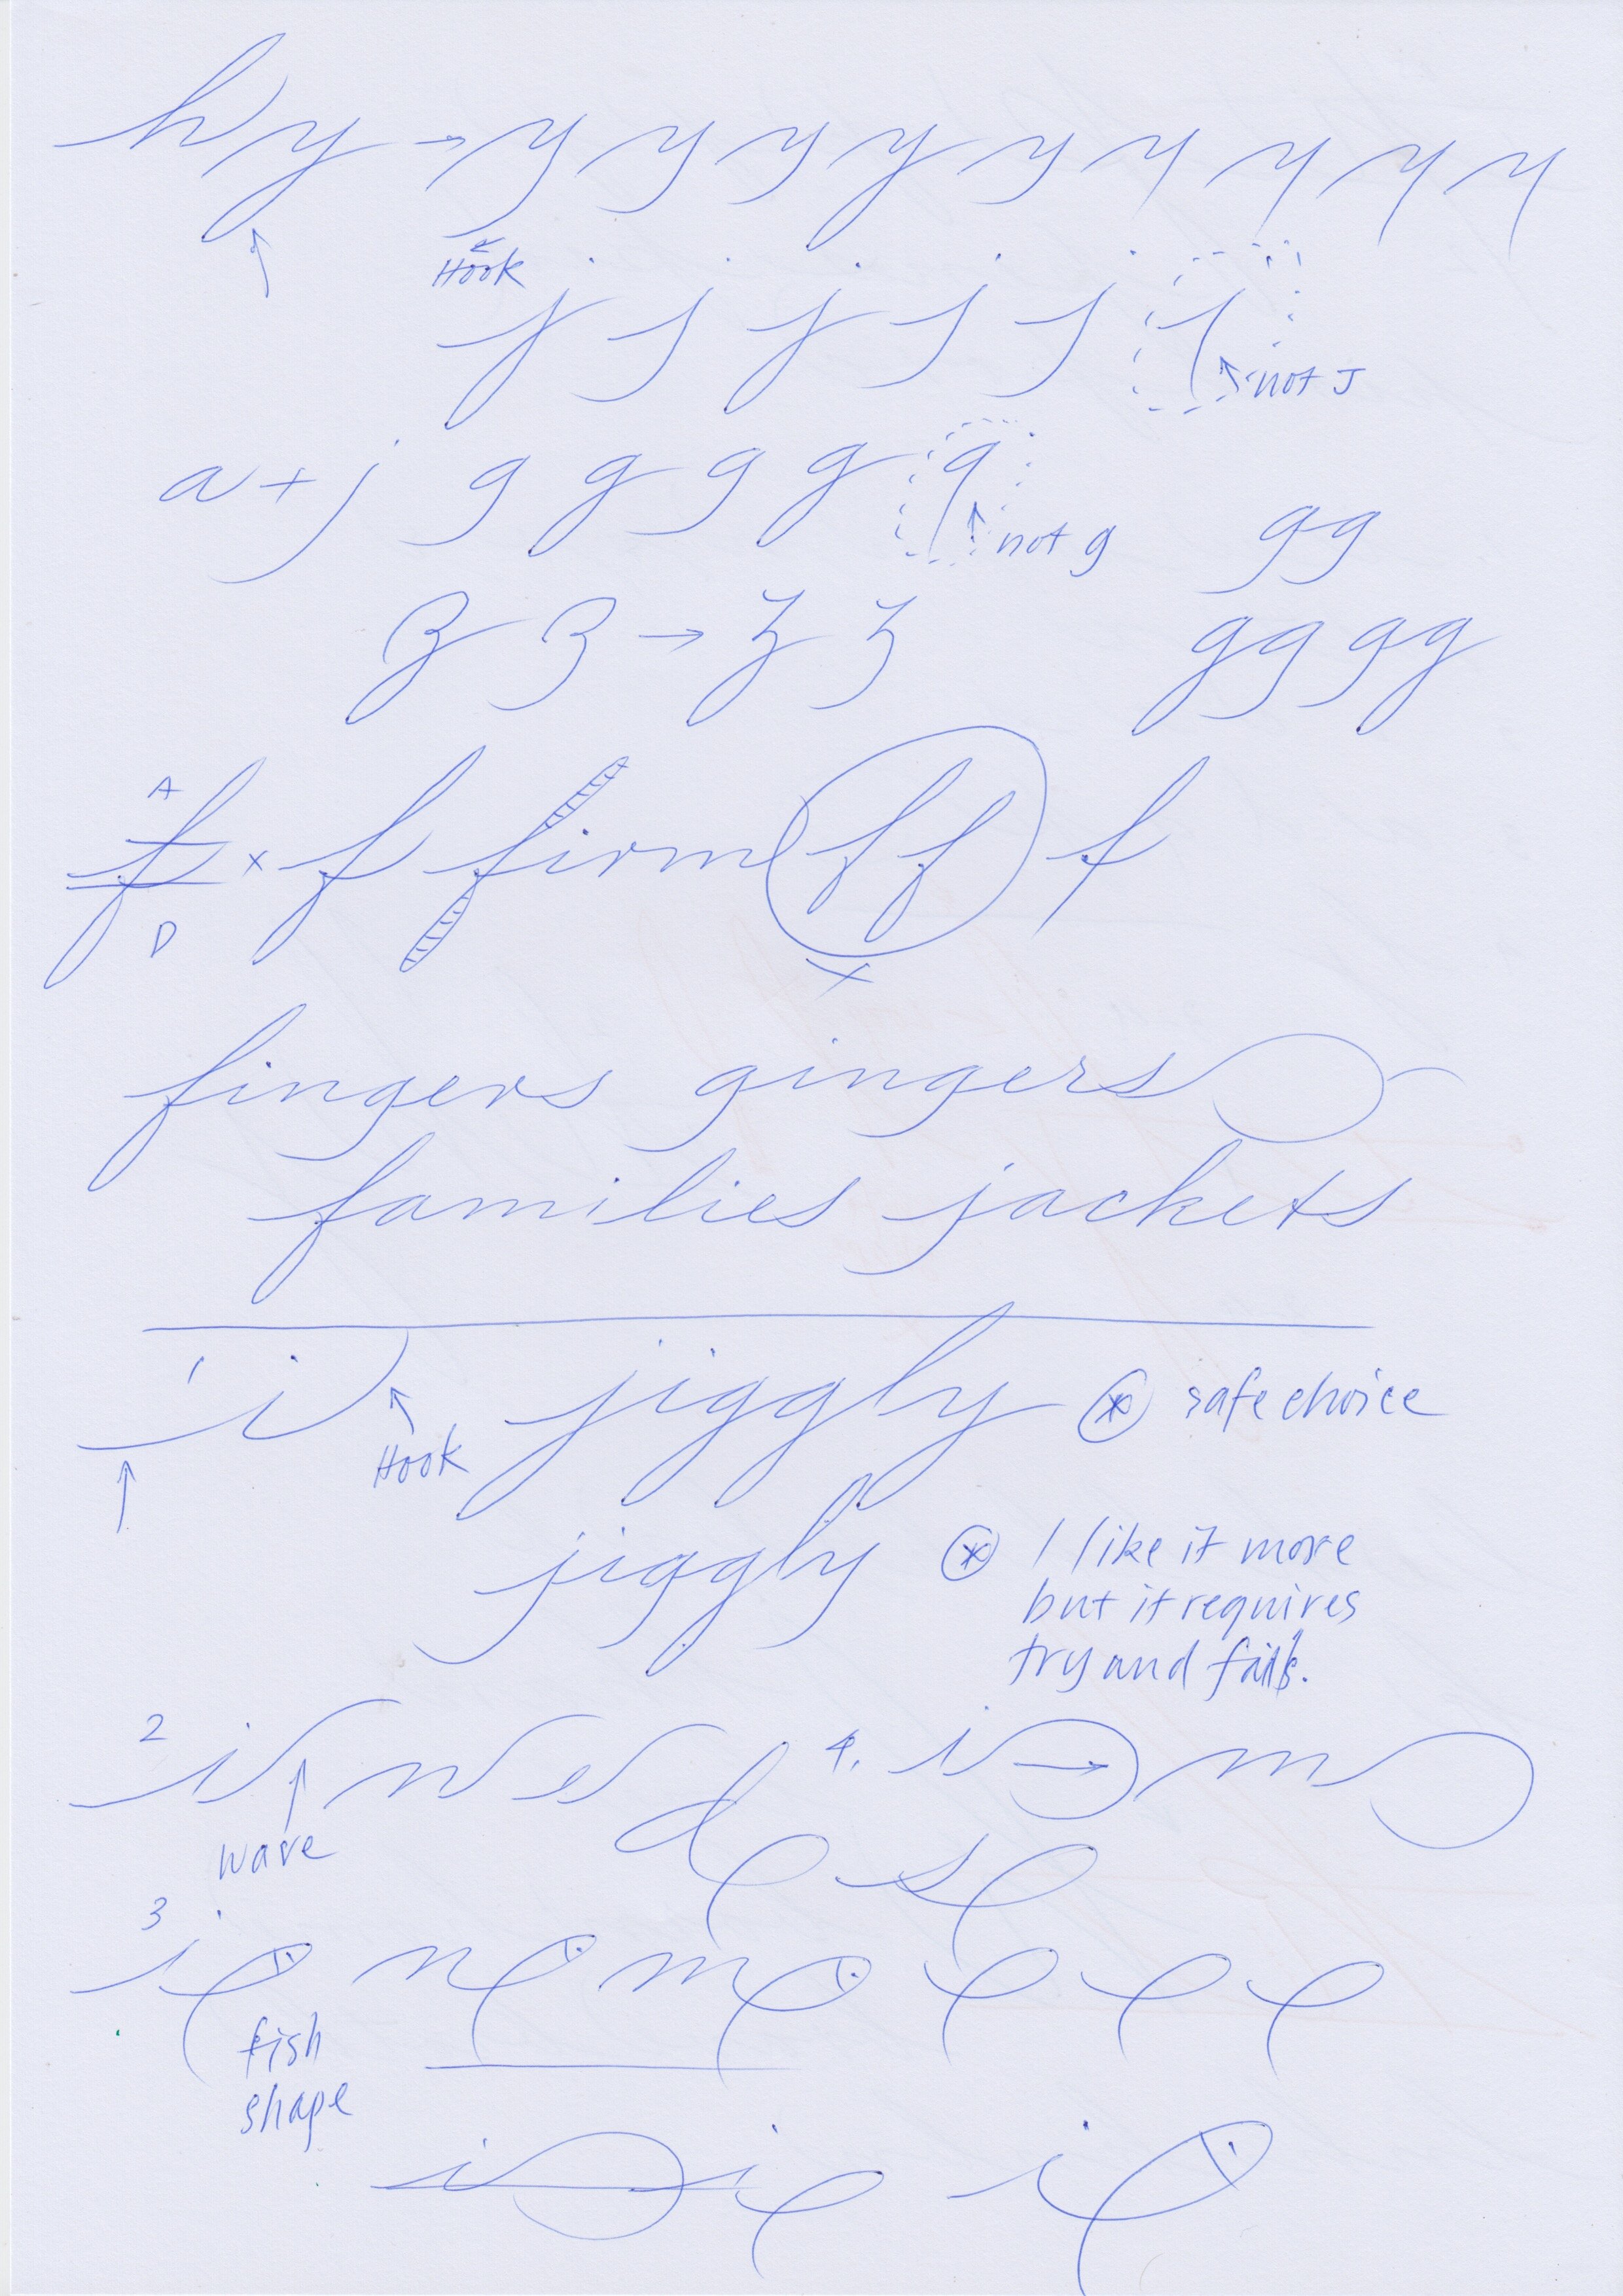 hy → y y y y y y y y y
Hook
j j j j j j
not J
a + j g g g g q
not g
gg
z z → z z
gg gg
A
f x f firm ff f
D
x
fingers gingers
families jackets
i
Hook
jiggly safe choice
jiggly I like it more
but it requires
try and fails.
2 i n s d 4. i → m
wave
s
3 i n m
fish
shape
i i i